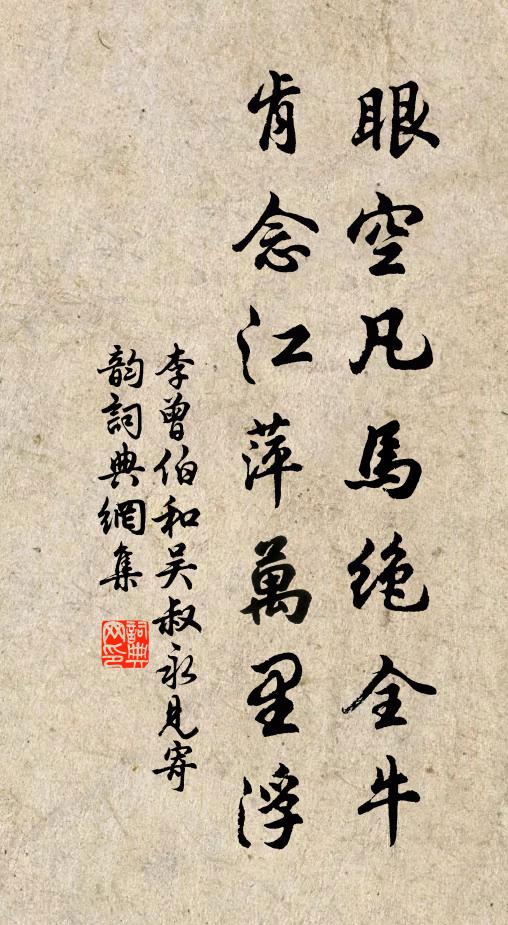 眼空凡馬絶全牛
肯念江萍萬里浮
李曾伯和吴叔永見寄
韵詞典網集
詞典
网印